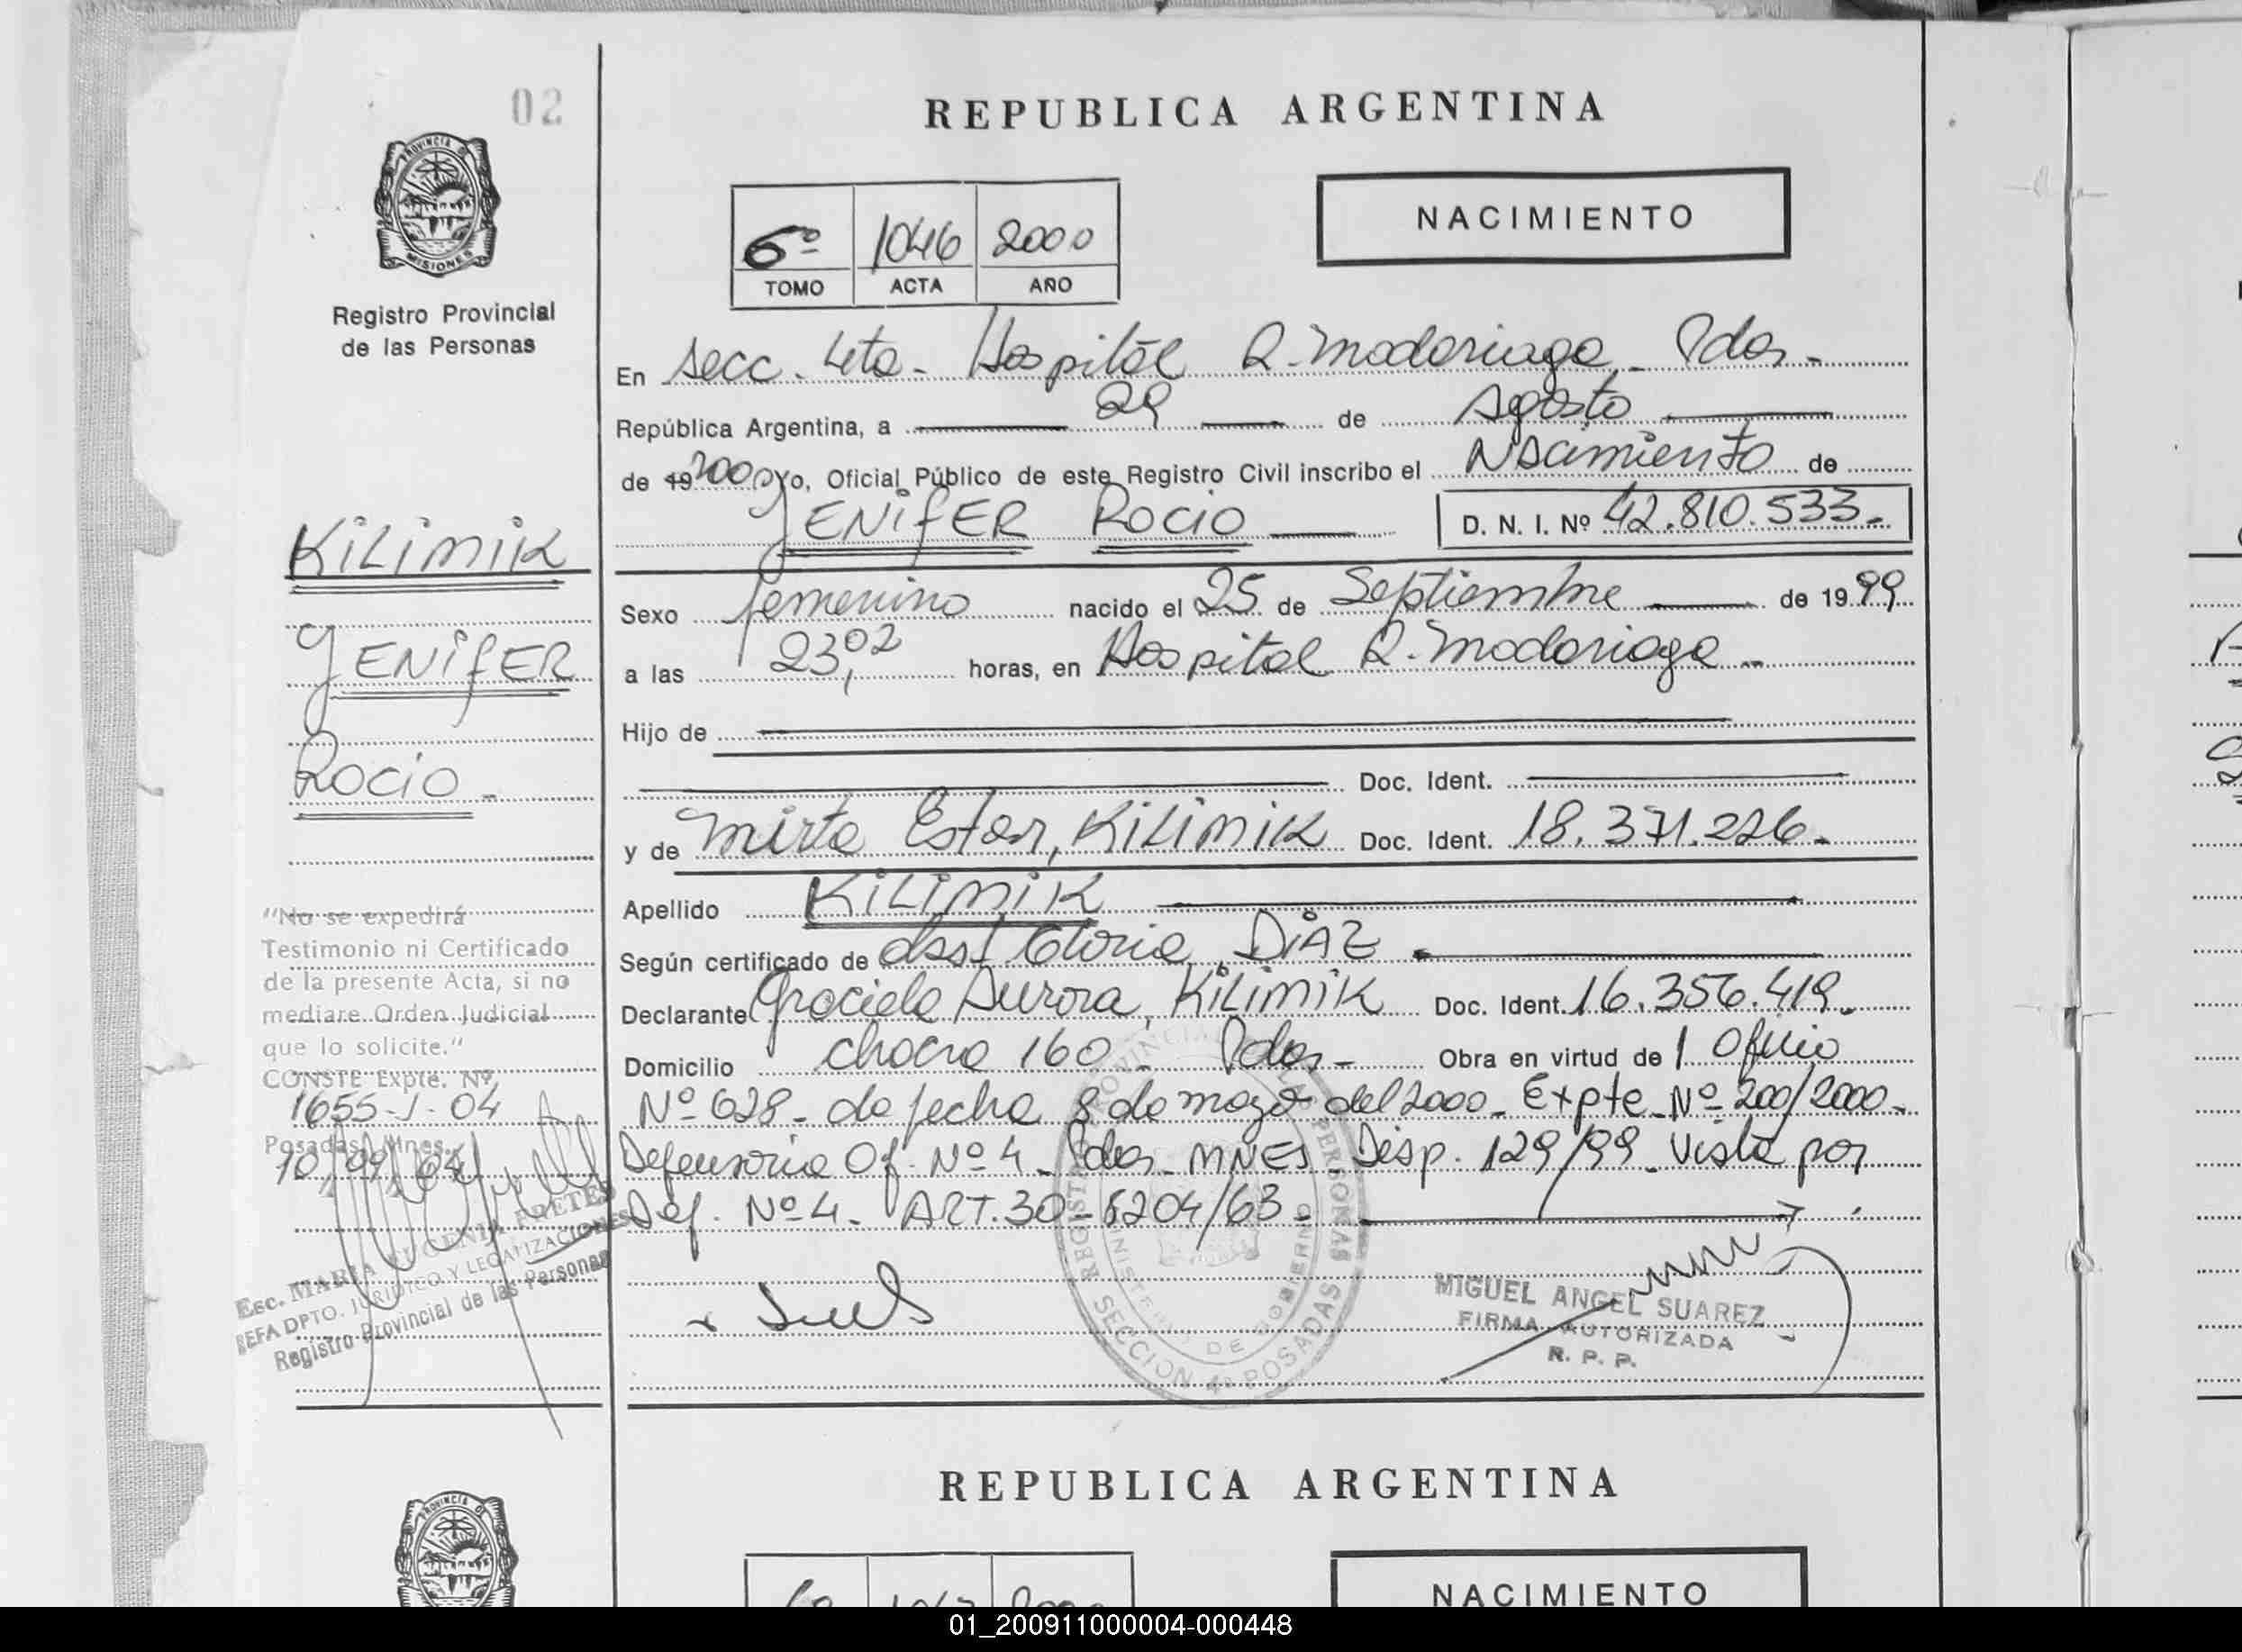 02
PROVINCIA D
MISIONES
Registro Provincial
de las Personas
KiLiMiK
JENifER
Rocio -
"No se expedirá
Testimonio ni Certificado
de la presente Acta, si no
mediare Orden Judicial
que lo solicite."
CONSTE Expte. Nº
1655-J-04
Posadas, Mnes.
10/09/04
Esc. MARIA EUGENIA FRETES
JEFA DPTO. JURIDICO Y LEGALIZACIONES
Registro Provincial de las Personas
REPUBLICA ARGENTINA
NACIMIENTO
6º 1046 2000
TOMO ACTA AÑO
En Secc. 4ta. Hospital R. Madariaga. Pdas.-
República Argentina, a 29 de Agosto
de 19 2000 Yo, Oficial Público de este Registro Civil inscribo el Nacimiento de
JENifER Rocio D. N. I. Nº 42.810.533.-
Sexo femenino nacido el 25 de Septiembre de 1999
a las 23,02 horas, en Hospital R. Madariaga -
Hijo de
Doc. Ident.
y de Mirta Ester, KiLiMiK Doc. Ident. 18.371.226.-
Apellido KiLiMiK
Según certificado de Obst Gloria DiAZ
Declarante Graciela Aurora, KiLiMiK Doc. Ident. 16.356.419.-
Domicilio chacra 160. Pdas.- Obra en virtud de 1 Oficio
Nº 628- de fecha 8 de mayo del 2000- Expte Nº 200/2000-
Defensoria Of. Nº 4- Pdas- MNES Disp. 129/99- Vista por
Def. Nº 4- ART. 30- 8204/63-
REGISTRO PROVINCIAL DE LAS PERSONAS
MINISTERIO DE GOBIERNO
SECCION 4ª POSADAS
MIGUEL ANGEL SUAREZ
FIRMA AUTORIZADA
R. P. P.
REPUBLICA ARGENTINA
PROVINCIA D
NACIMIENTO
01_200911000004-000448